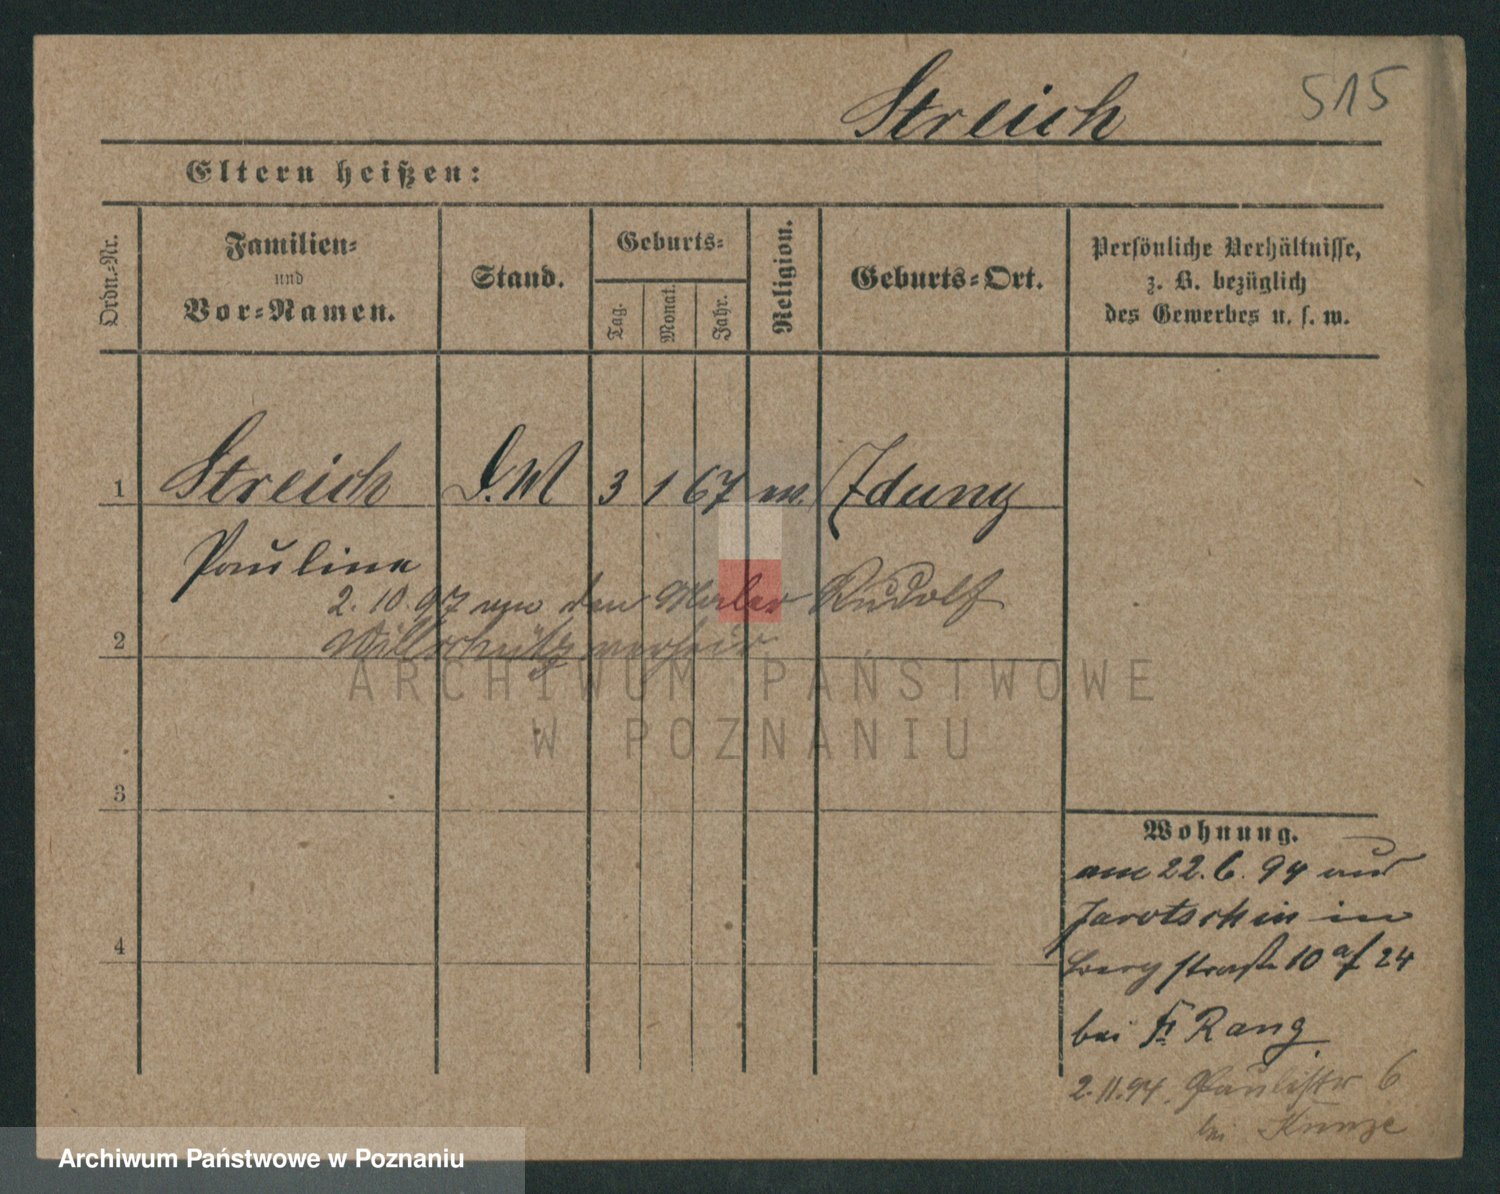 Streich 515
Eltern heißen:
Ordn.-Nr.
Familien-
und
Vor-Namen.
Stand.
Geburts-
Tag.
Monat.
Jahr.
Religion.
Geburts-Ort.
Persönliche Verhältnisse,
z. B. bezüglich
des Gewerbes u. s. w.
1 Streich D.M 3 1 67 ev. Idung
Pauline
2. 10. 97 an den Maler Rudolf
2 Willschütz verheir
ARCHIWUM PAŃSTWOWE
W POZNANIU
3
Wohnung.
am 22. 6. 94 aus
Jarotschin in
4
Bergstraße 10 af 24
bei Fr Rang
2. 11. 94. Paulistr 6
bei Kunze
Archiwum Państwowe w Poznaniu